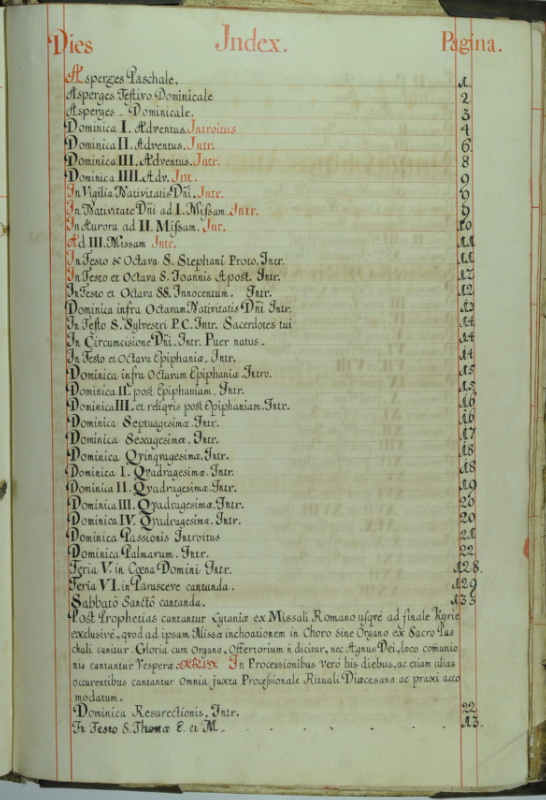 Dies Index. Pagina.
Asperges Paschale. 1
Asperges Festivo Dominicale 2
Asperges - Dominicale. 3
Dominica I. Adventus Introitus 4
Dominica II. Adventus. Intr. 6
Dominica III. Adventus. Intr. 8
Dominica IIII. Adv. Int. 9
In Vigilia Nativitatis Dñi. Intr. 9
In Nativitate Dñi ad I. Missam. Intr. 9
In Aurora ad II. Missam. Int. 10
Ad III. Missam Intr. 11
In Festo & Octava S. Stephani Proto. Intr. 11
In Festo et Octava S. Joannis Apost. Intr. 12
In Festo et Octava SS. Innocentum. Intr. 12
Dominica infra Octavam Nativitatis Dñi Intr. 13
In Festo S. Sylvestri P.C. Intr. Sacerdotes tui 14
In Circumcisione Dñi. Intr. Puer natus. 14
In Festo et Octava Epiphaniæ. Intr. 14
Dominica infra Octavam Epiphaniæ Intro. 15
Dominica II. post Epiphaniam. Intr. 15
Dominica III. et reliqvis post Epiphaniam. Intr. 16
Dominica Septuagesimæ. Intr. 16
Dominica Sexagesimæ. Intr. 17
Dominica Qvinqvagesimæ. Intr. 18
Dominica I. Qvadragesimæ. Intr. 18
Dominica II. Qvadragesimæ. Intr. 19
Dominica III. Qvadragesimæ. Intr. 20
Dominica IV. Qvadragesimæ. Intr. 20
Dominica Passionis Introitus 21
Dominica Palmarum. Intr. 22
Feria V. in Cœna Domini Intr. 128.
Feria VI. in Parasceve cantanda. 129
Sabbatô Sanctô cantanda. 133
Post Prophetias cantantur Lytaniæ ex Missali Romano usqve ad finale Kyrie
exclusivè, qvod ad ipsam Missæ inchoationem in Choro sine Organo ex Sacro Pas
chali canitur. Gloria cum Organo, Offertorium ñ dicitur, nec Agnus Dei, loco comunio
nis cantantur Vesperæ In Processionibus vero his diebus, ac etiam alias
occurentibus cantantur omnia juxta Processionale Rituali Diœcesano ac praxi acco
modatum.
Dominica Resurectionis. Intr. 22
In Festo S. Thomæ E. et M. 13.